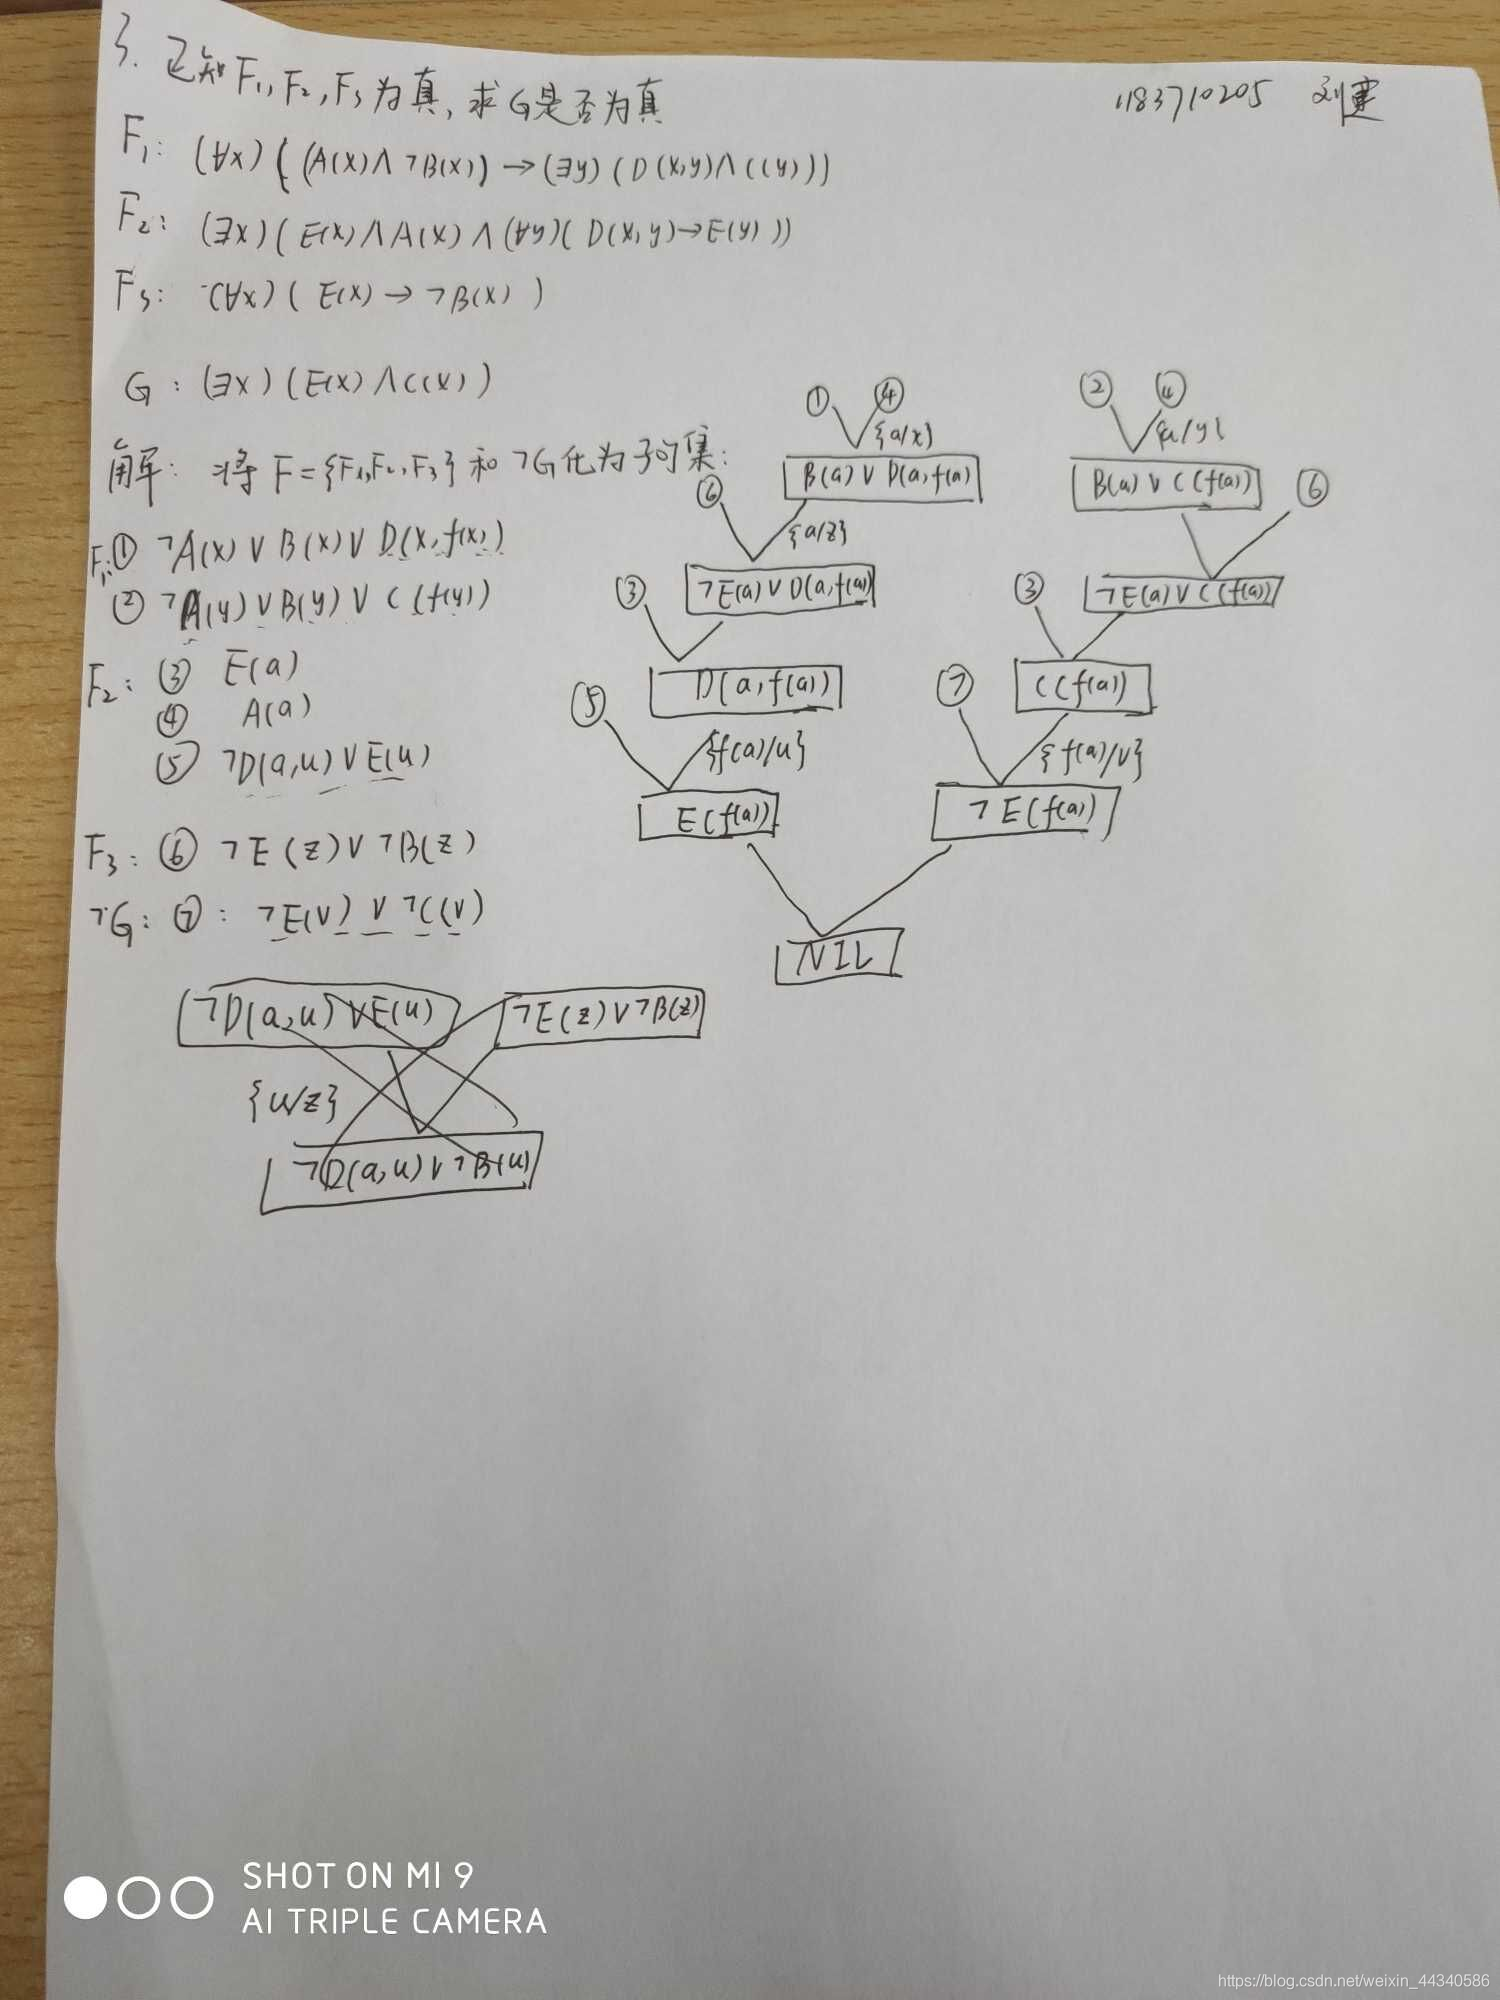 3. 已知F₁,F₂,F₃为真,求G是否为真
1183710205 刘建
F₁: (∀x)((A(x)∧¬B(x))→(∃y)(D(x,y)∧C(y)))
F₂: (∃x)(E(x)∧A(x)∧(∀y)(D(x,y)→E(y)))
F₃: (∀x)(E(x)→¬B(x))
G: (∃x)(E(x)∧C(x))
解: 将F={F₁,F₂,F₃}和¬G化为子句集:
F₁: ① ¬A(x)∨B(x)∨D(x,f(x))
② ¬A(y)∨B(y)∨C(f(y))
F₂: ③ E(a)
④ A(a)
⑤ ¬D(a,u)∨E(u)
F₃: ⑥ ¬E(z)∨¬B(z)
¬G: ⑦: ¬E(v)∨¬C(v)
① ④
{a/x}
B(a)∨D(a,f(a))
⑥
{a/z}
¬E(a)∨D(a,f(a))
③
D(a,f(a))
⑤
{f(a)/u}
E(f(a))
② ④
{a/y}
B(a)∨C(f(a))
⑥
¬E(a)∨C(f(a))
③
C(f(a))
⑦
{f(a)/v}
¬E(f(a))
NIL
¬D(a,u)∨E(u)
¬E(z)∨¬B(z)
{u/z}
¬D(a,u)∨¬B(u)
SHOT ON MI 9
AI TRIPLE CAMERA
https://blog.csdn.net/weixin_44340586